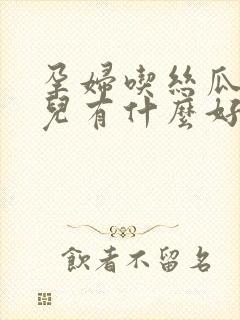 孕婦喫絲瓜
兒有什麼好
飲者不留名